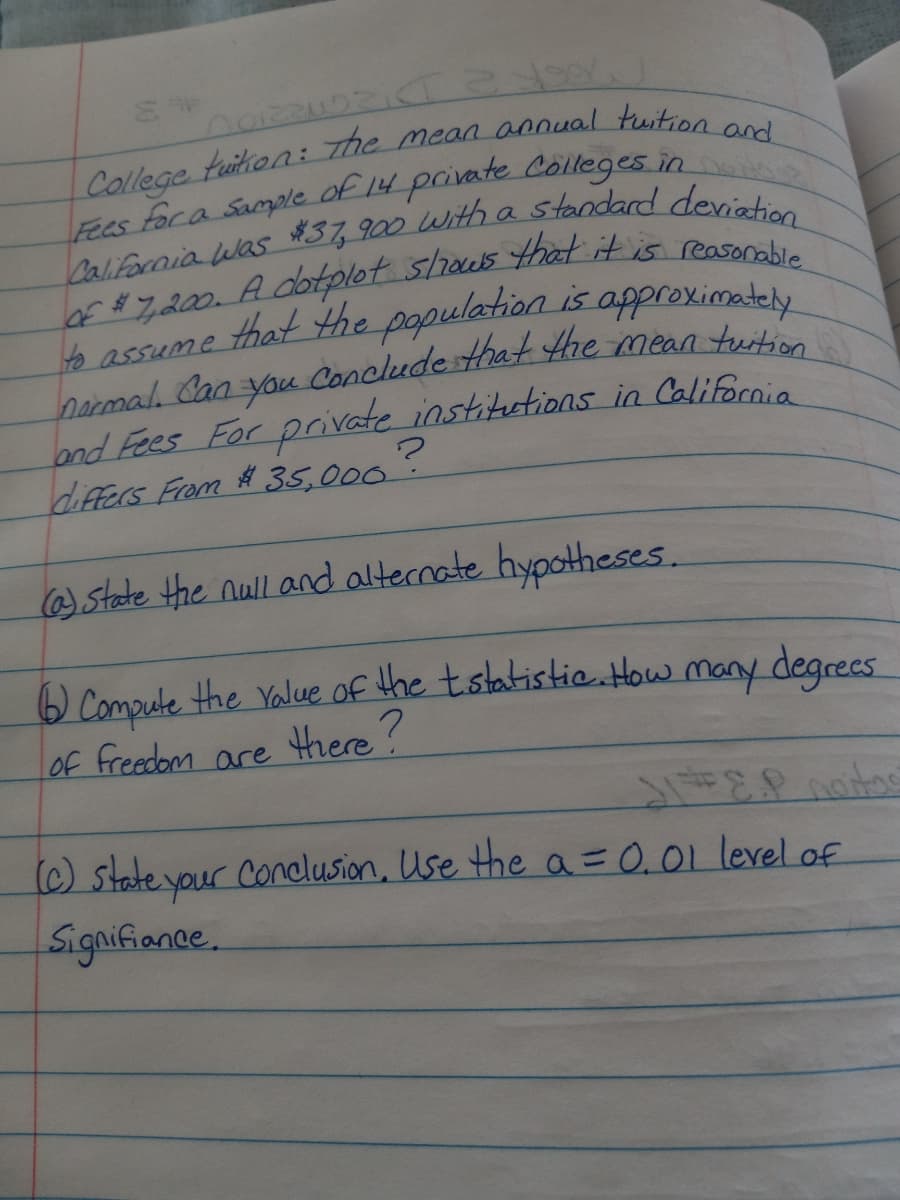 College tuition: The mean annual tuition and
Fees for a Sample of 14 private Colleges in
California was $37,900 with a standard deviation
of $7,200. A dotplot shows that it is reasonable
to assume that the population is approximately
normal. Can you Conclude that the mean tuition
and Fees For private institutions in California
differs From $35,000?
(a) State the null and alternate hypotheses.
(b) Compute the Value of the t statistic. How many degrees
of freedom are there?
(c) State your Conclusion. Use the a = 0.01 level of
Signifiance.